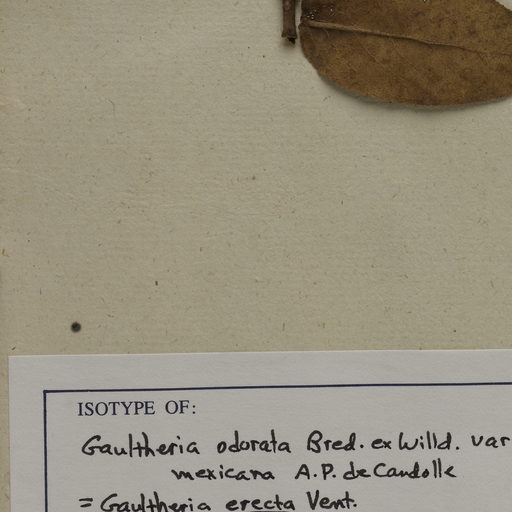 ISOTYPE OF:
Gaultheria odorata Bred. ex Willd. var
mexicana A.P. de Candolle
= Gaultheria erecta Vent.